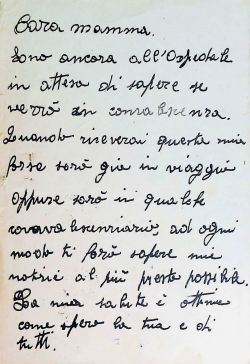 Cara mamma.
Sono ancora all'Ospedale
in attesa di sapere se
verrò in convalescenza.
Quando riceverai questa mia
forse sarò già in viaggio
oppure sarò in qualche
convalescenziario, ad ogni
modo ti farò sapere mie
notizie al più presto possibile.
La mia salute è ottima
come spero la tua e di
tutti.